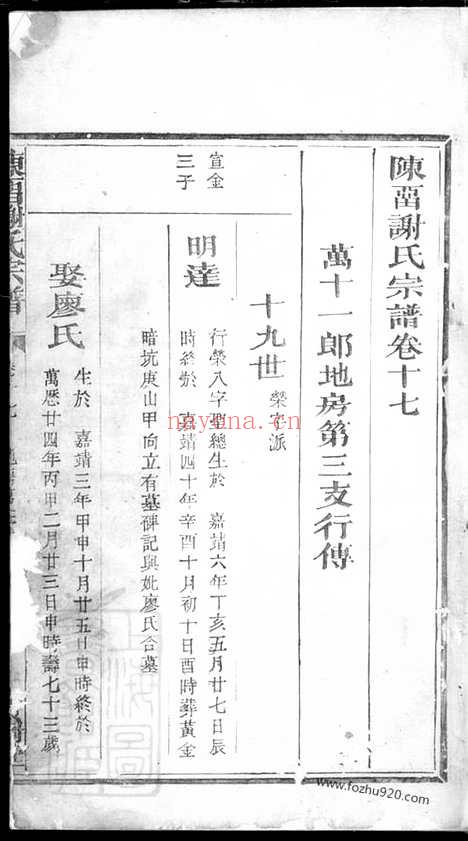 陳畱謝氏宗譜卷十七
萬十一郎地房第三支行傳
十九世 榮字派
宣金
三子
明達
行榮八字聖總生於 嘉靖六年丁亥五月廿七日辰
時終於 嘉靖四十年辛酉十月初十日酉時葬黃金
暗坑庚山甲向立有墓碑記與妣廖氏合墓
娶廖氏
生於 嘉靖三年甲申十月廿五日申時終於
萬歷廿四年丙申二月廿三日申時壽七十三歲
陳畱謝氏宗譜
nayuna.cn
www.fozhu920.com